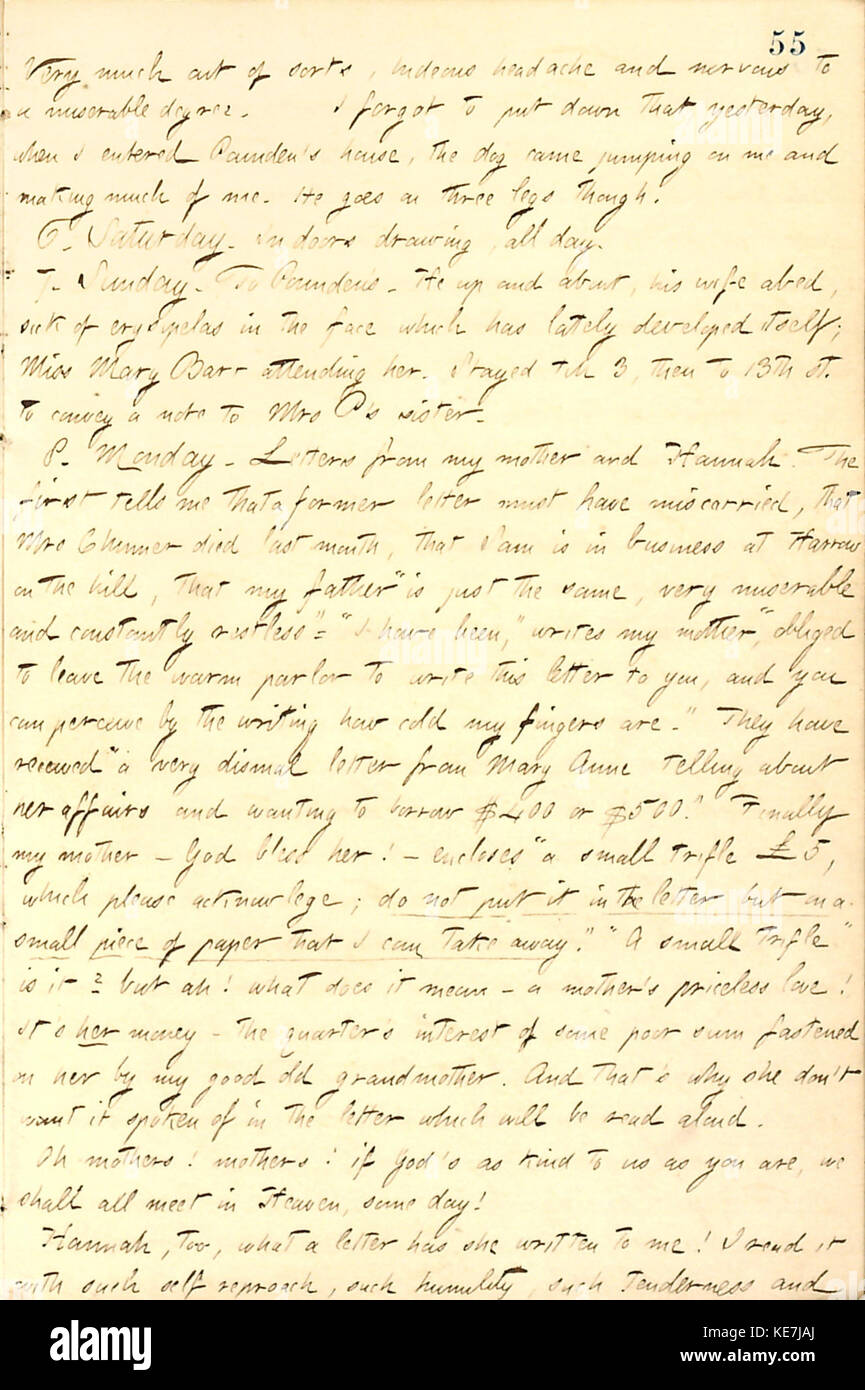 55
Very much out of sorts, hideous headache and nervous to
a miserable degree. I forgot to put down that yesterday,
when I entered Pounden's house, the dog came jumping on me and
making much of me. He goes on three legs though.
6. Saturday. In doors drawing, all day.
7. Sunday. To Pounden's. He up and about, his wife abed,
sick of erysipelas in the face which has lately developed itself;
Miss Mary Barr attending her. Stayed till 3, then to 13th st.
to convey a note to Mrs P's sister.
8. Monday. Letters from my mother and Hannah. The
first tells me that a former letter must have miscarried, that
Mrs Chinner died last month, that Sam is in business at Harrow
on the hill, that my father "is just the same, very miserable
and constantly restless" = "I have been," writes my mother, "obliged
to leave the warm parlor to write this letter to you, and you
can perceive by the writing how cold my fingers are." They have
received "a very dismal letter from Mary Anne telling about
her affairs and wanting to borrow $400 or $500." Finally
my mother — God bless her! — encloses "a small trifle £5,
which please acknowlege; do not put it in the letter but on a
small piece of paper that I can take away." "A small trifle"
is it? but ah! what does it mean — a mother's priceless love!
It's her money — the quarter's interest of some poor sum fastened
on her by my good old grandmother. And that's why she don't
want it spoken of in the letter which will be read aloud.
Oh mothers! mothers! if God's as kind to us as you are, we
shall all meet in Heaven, some day!
Hannah, too, what a letter has she written to me! I read it
with such self reproach, such humility, such tenderness and
alamy
Image ID: KE7JAJ
www.alamy.com